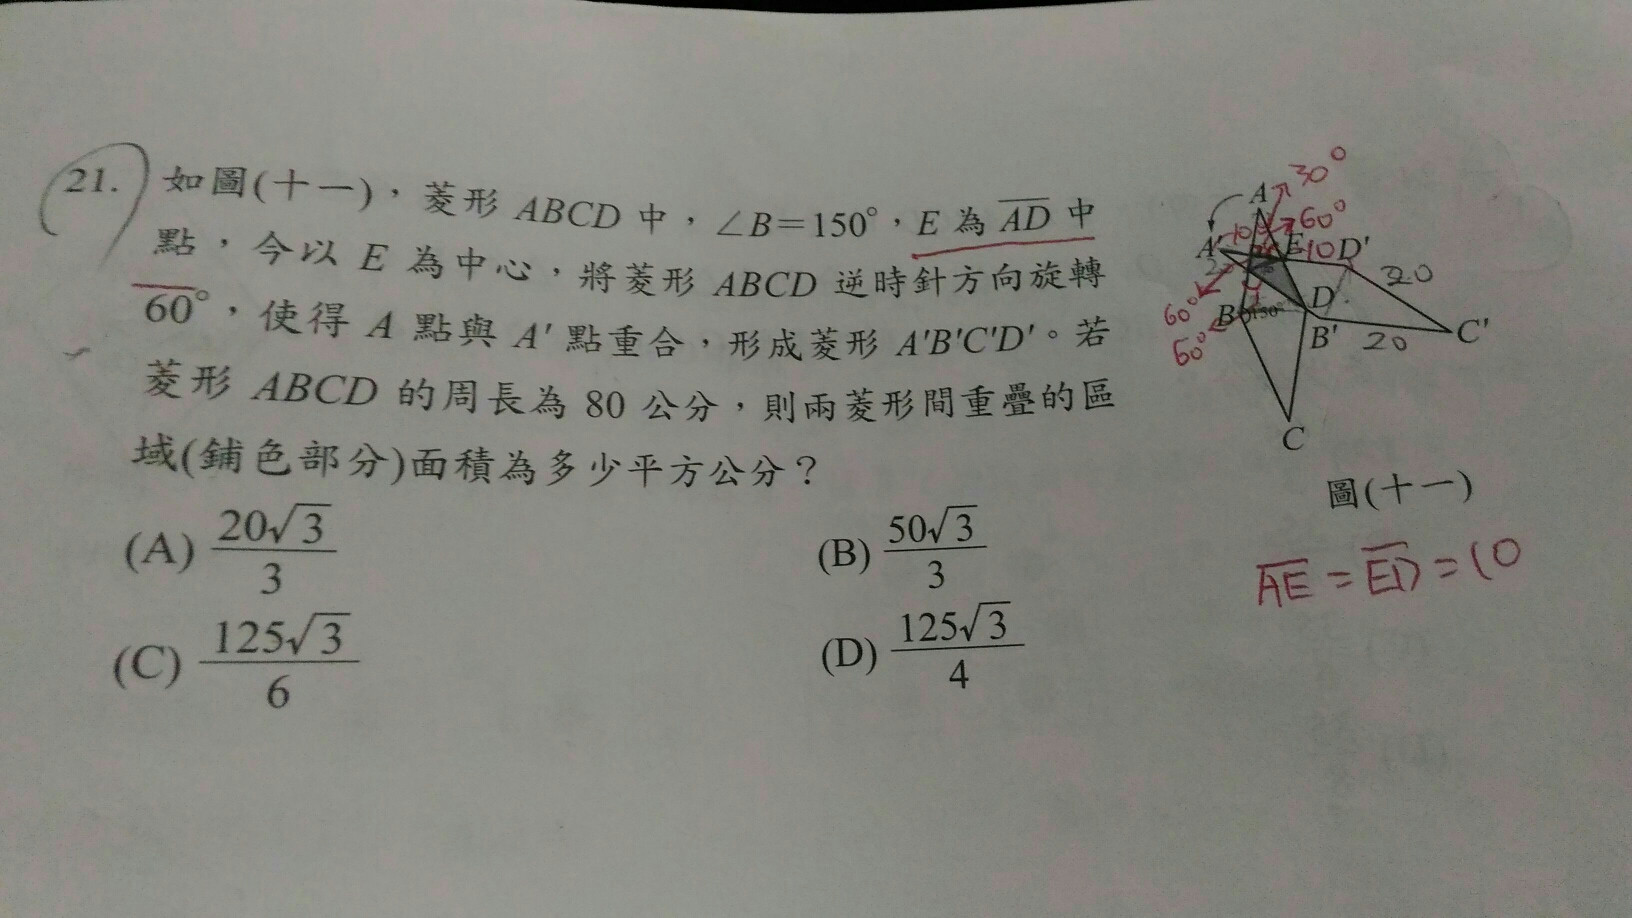 21. 如圖(十一)，菱形 ABCD 中，∠B＝150°，E 為 AD 中
點，今以 E 為中心，將菱形 ABCD 逆時針方向旋轉
60°，使得 A 點與 A' 點重合，形成菱形 A'B'C'D'。若
菱形 ABCD 的周長為 80 公分，則兩菱形間重疊的區
域(鋪色部分)面積為多少平方公分？
(A) 20√3/3
(B) 50√3/3
(C) 125√3/6
(D) 125√3/4
A
30°
60°
A'
10
E
10
D'
20
60°
B
150°
D
60°
B'
20
C'
C
圖(十一)
AE = ED = 10